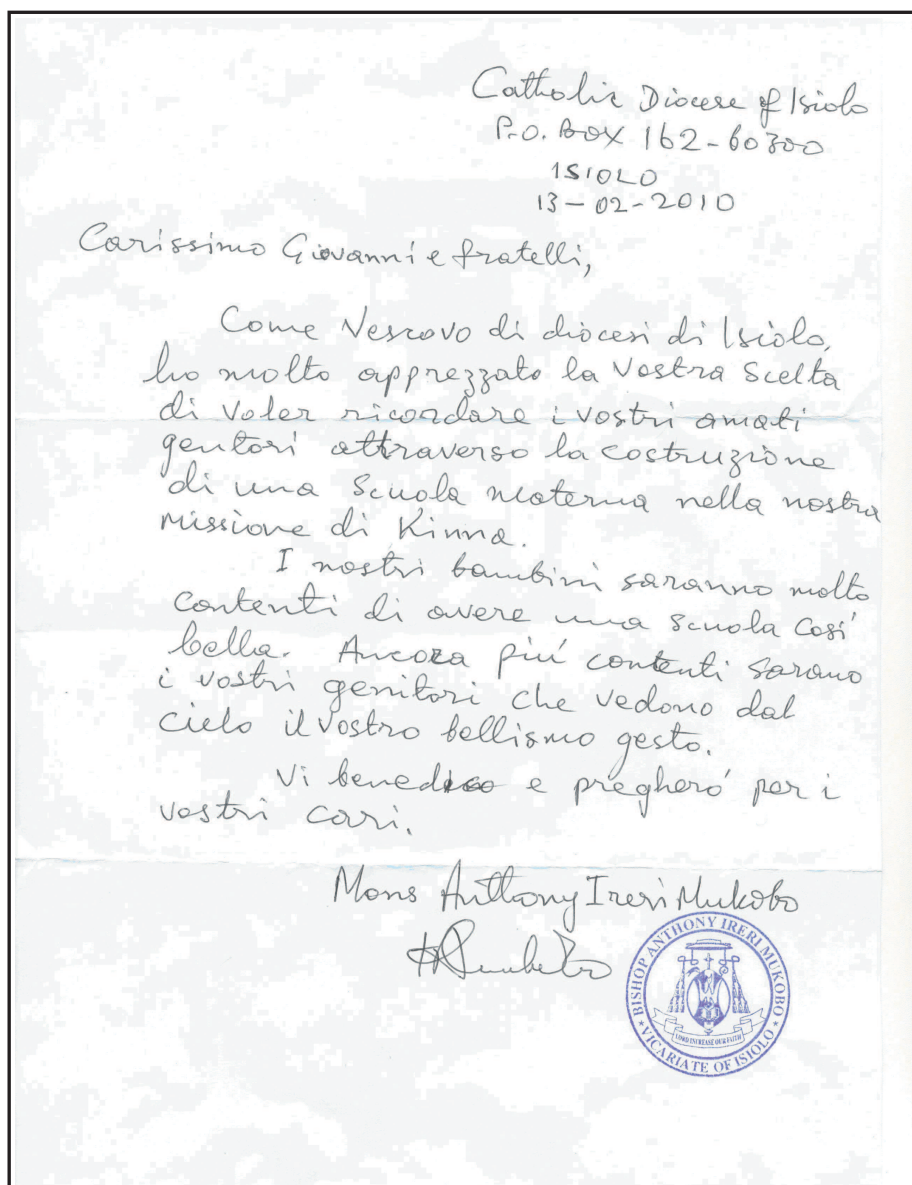 Catholic Diocese of Isiolo
P.O. BOX 162-60300
ISIOLO
13-02-2010
Carissimo Giovanni e fratelli,
Come Vescovo di diocesi di Isiolo,
ho molto apprezzato la Vostra Scelta
di Voler ricordare i vostri amati
genitori attraverso la costruzione
di una Scuola materna nella nostra
missione di Kinna.
I nostri bambini saranno molto
contenti di avere una scuola Così
bella. Ancora più contenti sarano
i vostri genitori che vedono dal
cielo il vostro bellismo gesto.
Vi benedico e pregheró per i
vostri cari.
Mons Anthony Ireri Mukobo
BISHOP ANTHONY IRERI MUKOBO
LORD INCREASE OUR FAITH
VICARIATE OF ISIOLO